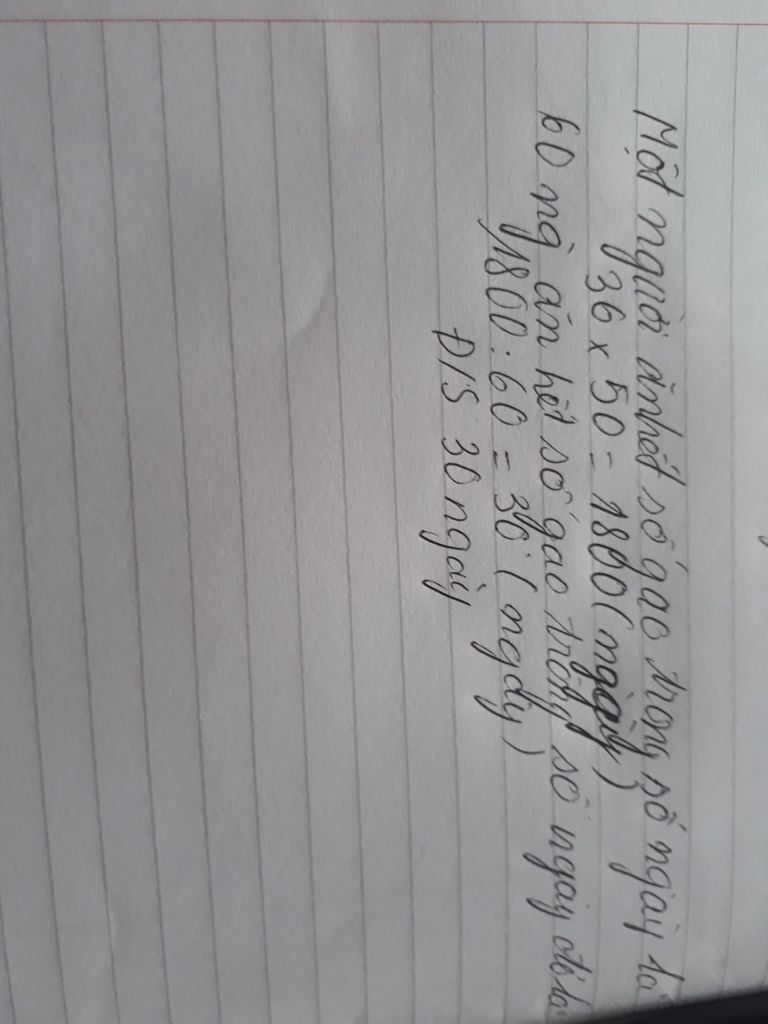 Một người ăn hết số gạo trong số ngày là
36 x 50 = 1800 (ngày)
60 ng ăn hết số gạo trong số ngày đó là
1800 : 60 = 30 (ngày)
Đ/S 30 ngày